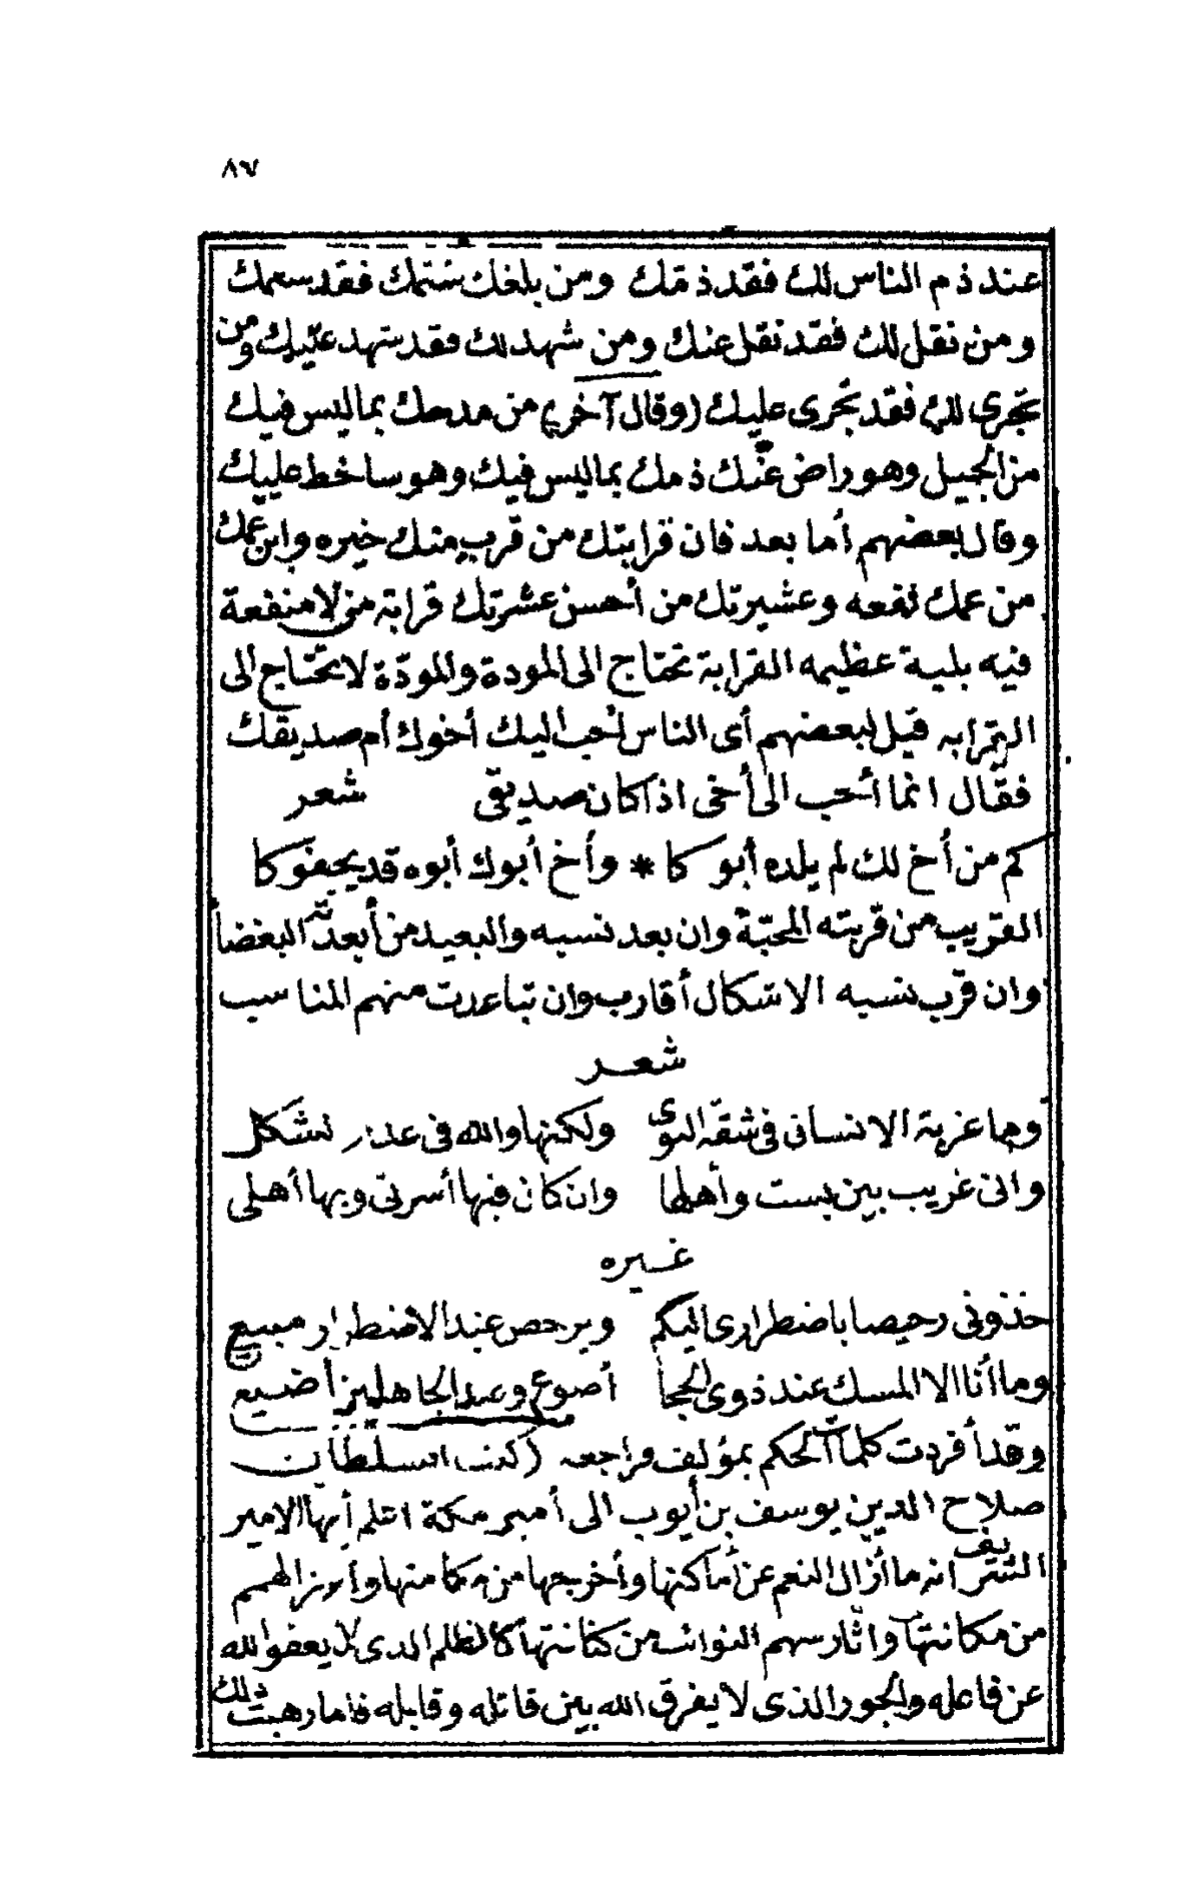 ٨٦
عند ذم الناس لك فقد ذمّك ومن بلغك شتمك فقد ستمك
ومن نقل لك فقد نقل عنك ومن شهد لك فقد شهد عليك ومن
تجرى لك فقد تجرى عليك (وقال آخر) من مدحك بما ليس فيك
من الجميل وهو راض عنّك ذمك بما ليس فيك وهو ساخط عليك
وقال بعضهم أما بعد فان قرابتك من قرب منك خيره وابن عمك
من عمك نفعه وعشيرتك من أحسن عشرتك قرابة من لا منفعة
فيه بلية عظيمه القرابة تحتاج الى المودة والمودّة لا تحتاج الى
القرابه قيل لبعضهم أى الناس أحب اليك أخوك أم صديقك
فقال انما أحب الى أخى اذا كان صديقى شعر
كم من أخ لك لم يلده أبوكا * وأخ أبوك أبوه قد يجفوكا
القريب من قربته المحبّة وان بعد نسبه والبعيد من أبعدته البغضا
وان قرب نسبه الاشكال أقارب وان تباعدت منهم المناسب
شعر
وما غربة الانسان فى شقّه النوى ولكنها والله فى عدم الشكل
وانى غريب بين بست وأهلها وان كان فيها أسرتى وبها أهلى
غيره
خذونى رخيصا باضطرارى اليكم ويرخص عند الاضطرار مبيع
وما أنا الا المسك عند ذوى الحجا أضوع وعند الجاهلين أضيع
وقد أفردت كلمات الحكم بمؤلف فراجعه (كتب السلطان
صلاح الدين يوسف بن أيوب الى أمير مكة اعلم أيها الامير
الشريف انه ما أزال النعم عن أماكنها وأخرجها من مكامنها وأبرز الهمم
من مكانتها وأثار سهم النوائب من كنانتها كالظلم الذى لا يعفو الله
عن فاعله والجور الذى لا يفرق الله بين قاتله وقابله فاما رهبت ذلك